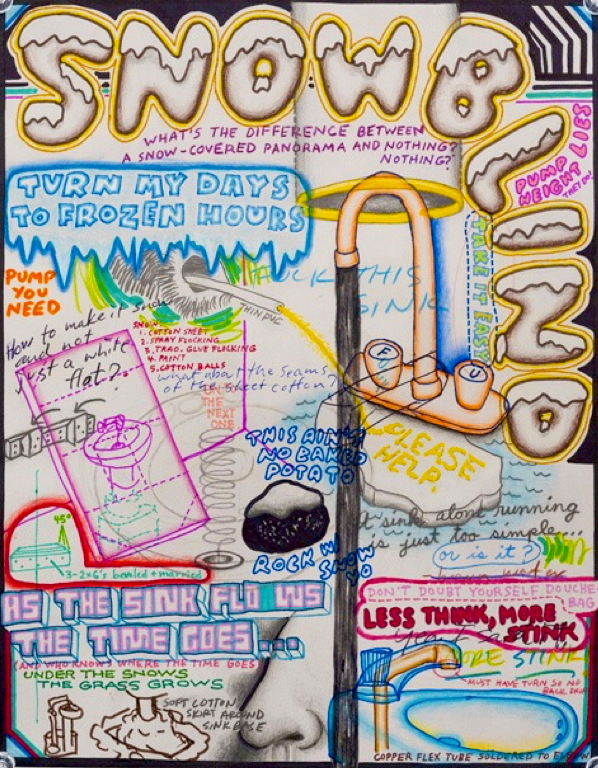 SNOWBLIND
WHAT'S THE DIFFERENCE BETWEEN
A SNOW-COVERED PANORAMA AND NOTHING?
NOTHING?
TURN MY DAYS
TO FROZEN HOURS
PUMP
HEIGHT
LIES
TAKE IT EASY
PUMP
YOU
NEED
THIS
SINK
THIN PVC
How to make it snow
and not
just a white
flat?
SNOW
1. COTTON SHEET
2. SPRAY FLOCKING
3. TRAD. GLUE FLOCKING
4. PAINT
5. COTTON BALLS
what about the seams
of the sheet cotton?
ON
THE
NEXT
ONE
F
U
PLEASE
HELP.
THIS AIN'T
NO BAKED
POTATO
ROCK W/
SNOW
YO
45°
3-2x6's beveled + married
sink alone running
is just too simple...
or is it?
DON'T DOUBT YOURSELF DOUCHE-
BAG
LESS THINK, MORE
STINK
MORE STINK
MUST HAVE TURN, SO NO
BACK DRIP
AS THE SINK FLOWS
THE TIME GOES...
(AND WHO KNOWS WHERE THE TIME GOES)
UNDER THE SNOWS
THE GRASS GROWS
SOFT COTTON
SKIRT AROUND
SINK BASE
COPPER FLEX TUBE SOLDERED TO ELBOW